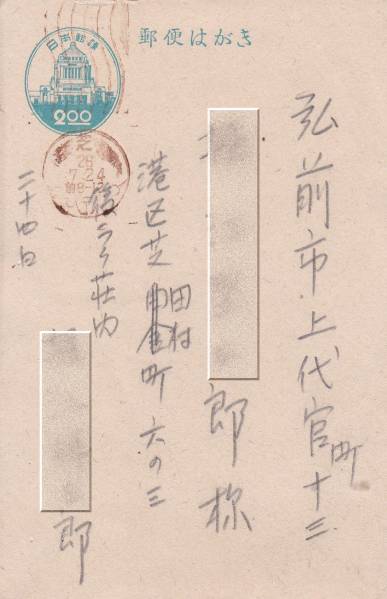 郵便はがき
日本郵便
2.00
芝
26
7.24
前8-12
弘前市上代官町十三
郎様
港区芝田村町六の三
荘内
二十四日
郎